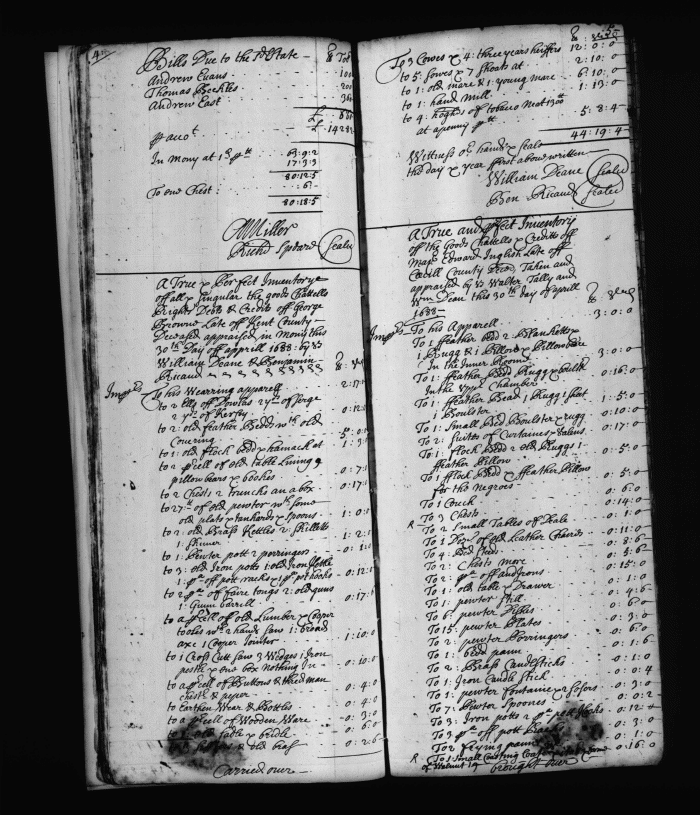 Bills Due to the Estate
Andrew Evans
Thomas Beckles
Andrew East
In Mony at 63:9:2
17:3:3
80:12:5
To one Chest : 6:
80:18:5
M Miller
Richd
Sealed
A True & Perfect Inventorye
off all & singular the goods Chattells
Rights Debts & Credits off George
Browne Late off Kent County
Deceased appraised in Mony this
30th Day off Apprill 1688 by us
William Deane & Benjamin
Ricaud
To his Wearring apparell 2:17:
to 2 Ells off Dowlas 2 yds of Serge
2 yds of Kersey 0:12:
to 2: old feather Bedds wth old
Covering 5:0:
to 1: old flock bedd & hamack at 1:3:
to a p'cell of old table lining &
pillow bears & bookes 0:7:
to 2 Chests 2 truncks an a box 0:17:
to 27 of old pewter wth some
old plats & tankards & spoons 1:0:
to 2: old Brass Kettles 2: Skilletts
1: Skimer 1:2:
to 1: Pewter pott 2 porringers 0:
to 3: old Iron potts 1: old Iron Kettle
1: pr off pott racks & 1 pr pott hooks 0:12:
to 2 pr of faire tongs 2: old guns
1: Gunn barrell 0:17:
to a p'cell off old Lumber & Cooper
tooles wth 2 hand saw 1: broad
axe 1 Cooper Jointer 1:10:
to 1 Cross Cutt saw 3 Wedges 1 Iron
pestle & one box Nothing in 0:10:0
to a p'cell of Buttons & thred man
chest & paper 0:4:0
to Earthen Wear & Bottles 0:4:0
to a p'cell of Wooden Ware 0:3:0
to a old sadle & bridle 0:6:0
& old 0:2:6
Carried over
To 3 Cowes & 4: three years heiffers 12:0:0
to 5: Sowes & 7 Shoats at 2:10:0
to 1: old mare & 1: young mare 6:10:0
to 1: hand mill 1:13:0
to 4: hogsh of tobacco neat 1300
at a penny 5:8:4
44:19:4
Witness our hands & seals
the day & year first above written
William Deane Sealed
Ben: Ricaud Sealed
A True and p'fect Inventory
off the Goods Chattells & Creditts off
Majr Edward Inglish Late off
Cecill County Decd Taken and
appraised by us Walter Tally and
Wm Dean this 30th day of Aprill
1688
To his Apparell 3:0:0
To 1 ffeather bedd 2 Blanketts
1 Rugg & 1 Pillow & Pillowbeare
In the Inner Roome 3:0:0
To 1: ffeather Bedd Rugg & quilt
In the uper Chamber 0:16:0
To 1 ffeather Bead 1 Rugg 1 Shet
1 Boulster 1:5:0
To 1: Small Bed Boulster & rugg 0:10:0
To 2: Suites of Curtaines & Valens 0:17:0
To 1 fflock Bedd 2 old Ruggs 1
ffeather Pillow 0:5:0
To 1 fflock bedd & ffeather Pillow
for the Negroes 0:5:0
To 1 Couch 0:6:0
To 3 Chests 0:14:0
To 2 Small Tables off 0:1:0
of old Leather Chairs 0:11:0
To 4: Bed steds 0:8:6
To 2: Chests more 0:5:6
To 2: pr off andirons 0:15:0
To 1: old table & Drawer 0:1:0
To 1: pewter still 0:4:6
To 6: pewter Dishes 0:5:0
To 15: pewter Plates 0:3:0
To 2: pewter Porringers 0:6:0
To 1: bedd pann 0:1:6
To 2: Brass Candlesticks 0:1:0
To 1: Iron Candle stick 0:0:4
To 1: pewter fontaine & 2 0:3:0
To 7: Pewter Spoones 0:0:2
To 3: Iron potts 2 pr pott Hooks 0:12:
To 3 pr off pott Racks 0:3:0
To 2 frying panns 0:1:0
To 1 Small 0:16:0
of Walnut
brought over